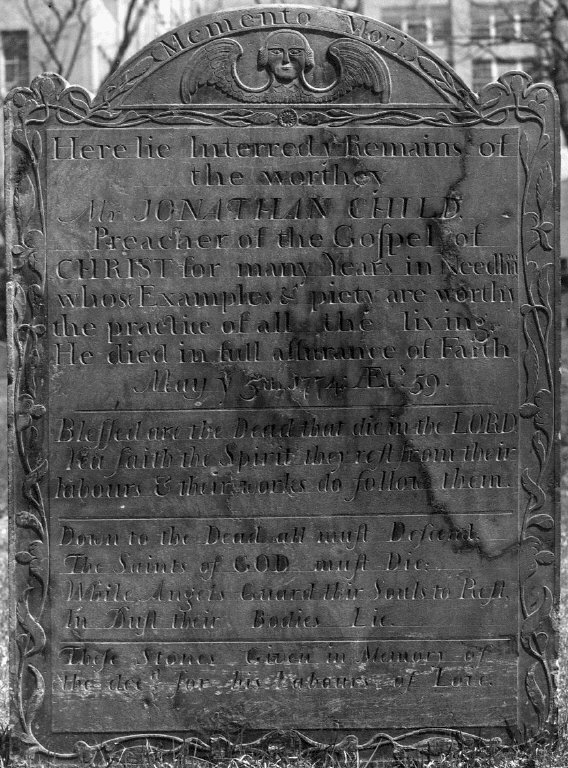 Memento Mori
Here lie Interred yͤ Remains of
the worthey
Mr. JONATHAN CHILD.
Preacher of the Goſpel of
CHRIST for many Years in Needhͫ
whose Examples & piety are worthy
the practice of all the living.
He died in full aſſurance of Faith
May yͤ 5th, 1774: Æts. 59.
Bleſſed are the Dead that die in the LORD
Yea ſaith the Spirit they reſt from their
labours & their works do follow them.
Down to the Dead all muſt Deſcend.
The Saints of GOD muſt Die:
While Angels Guard thir Souls to Reſt,
In Duſt their Bodies Lie.
Theſe Stones Given in Memory of
the decd. for his Labours of Love.